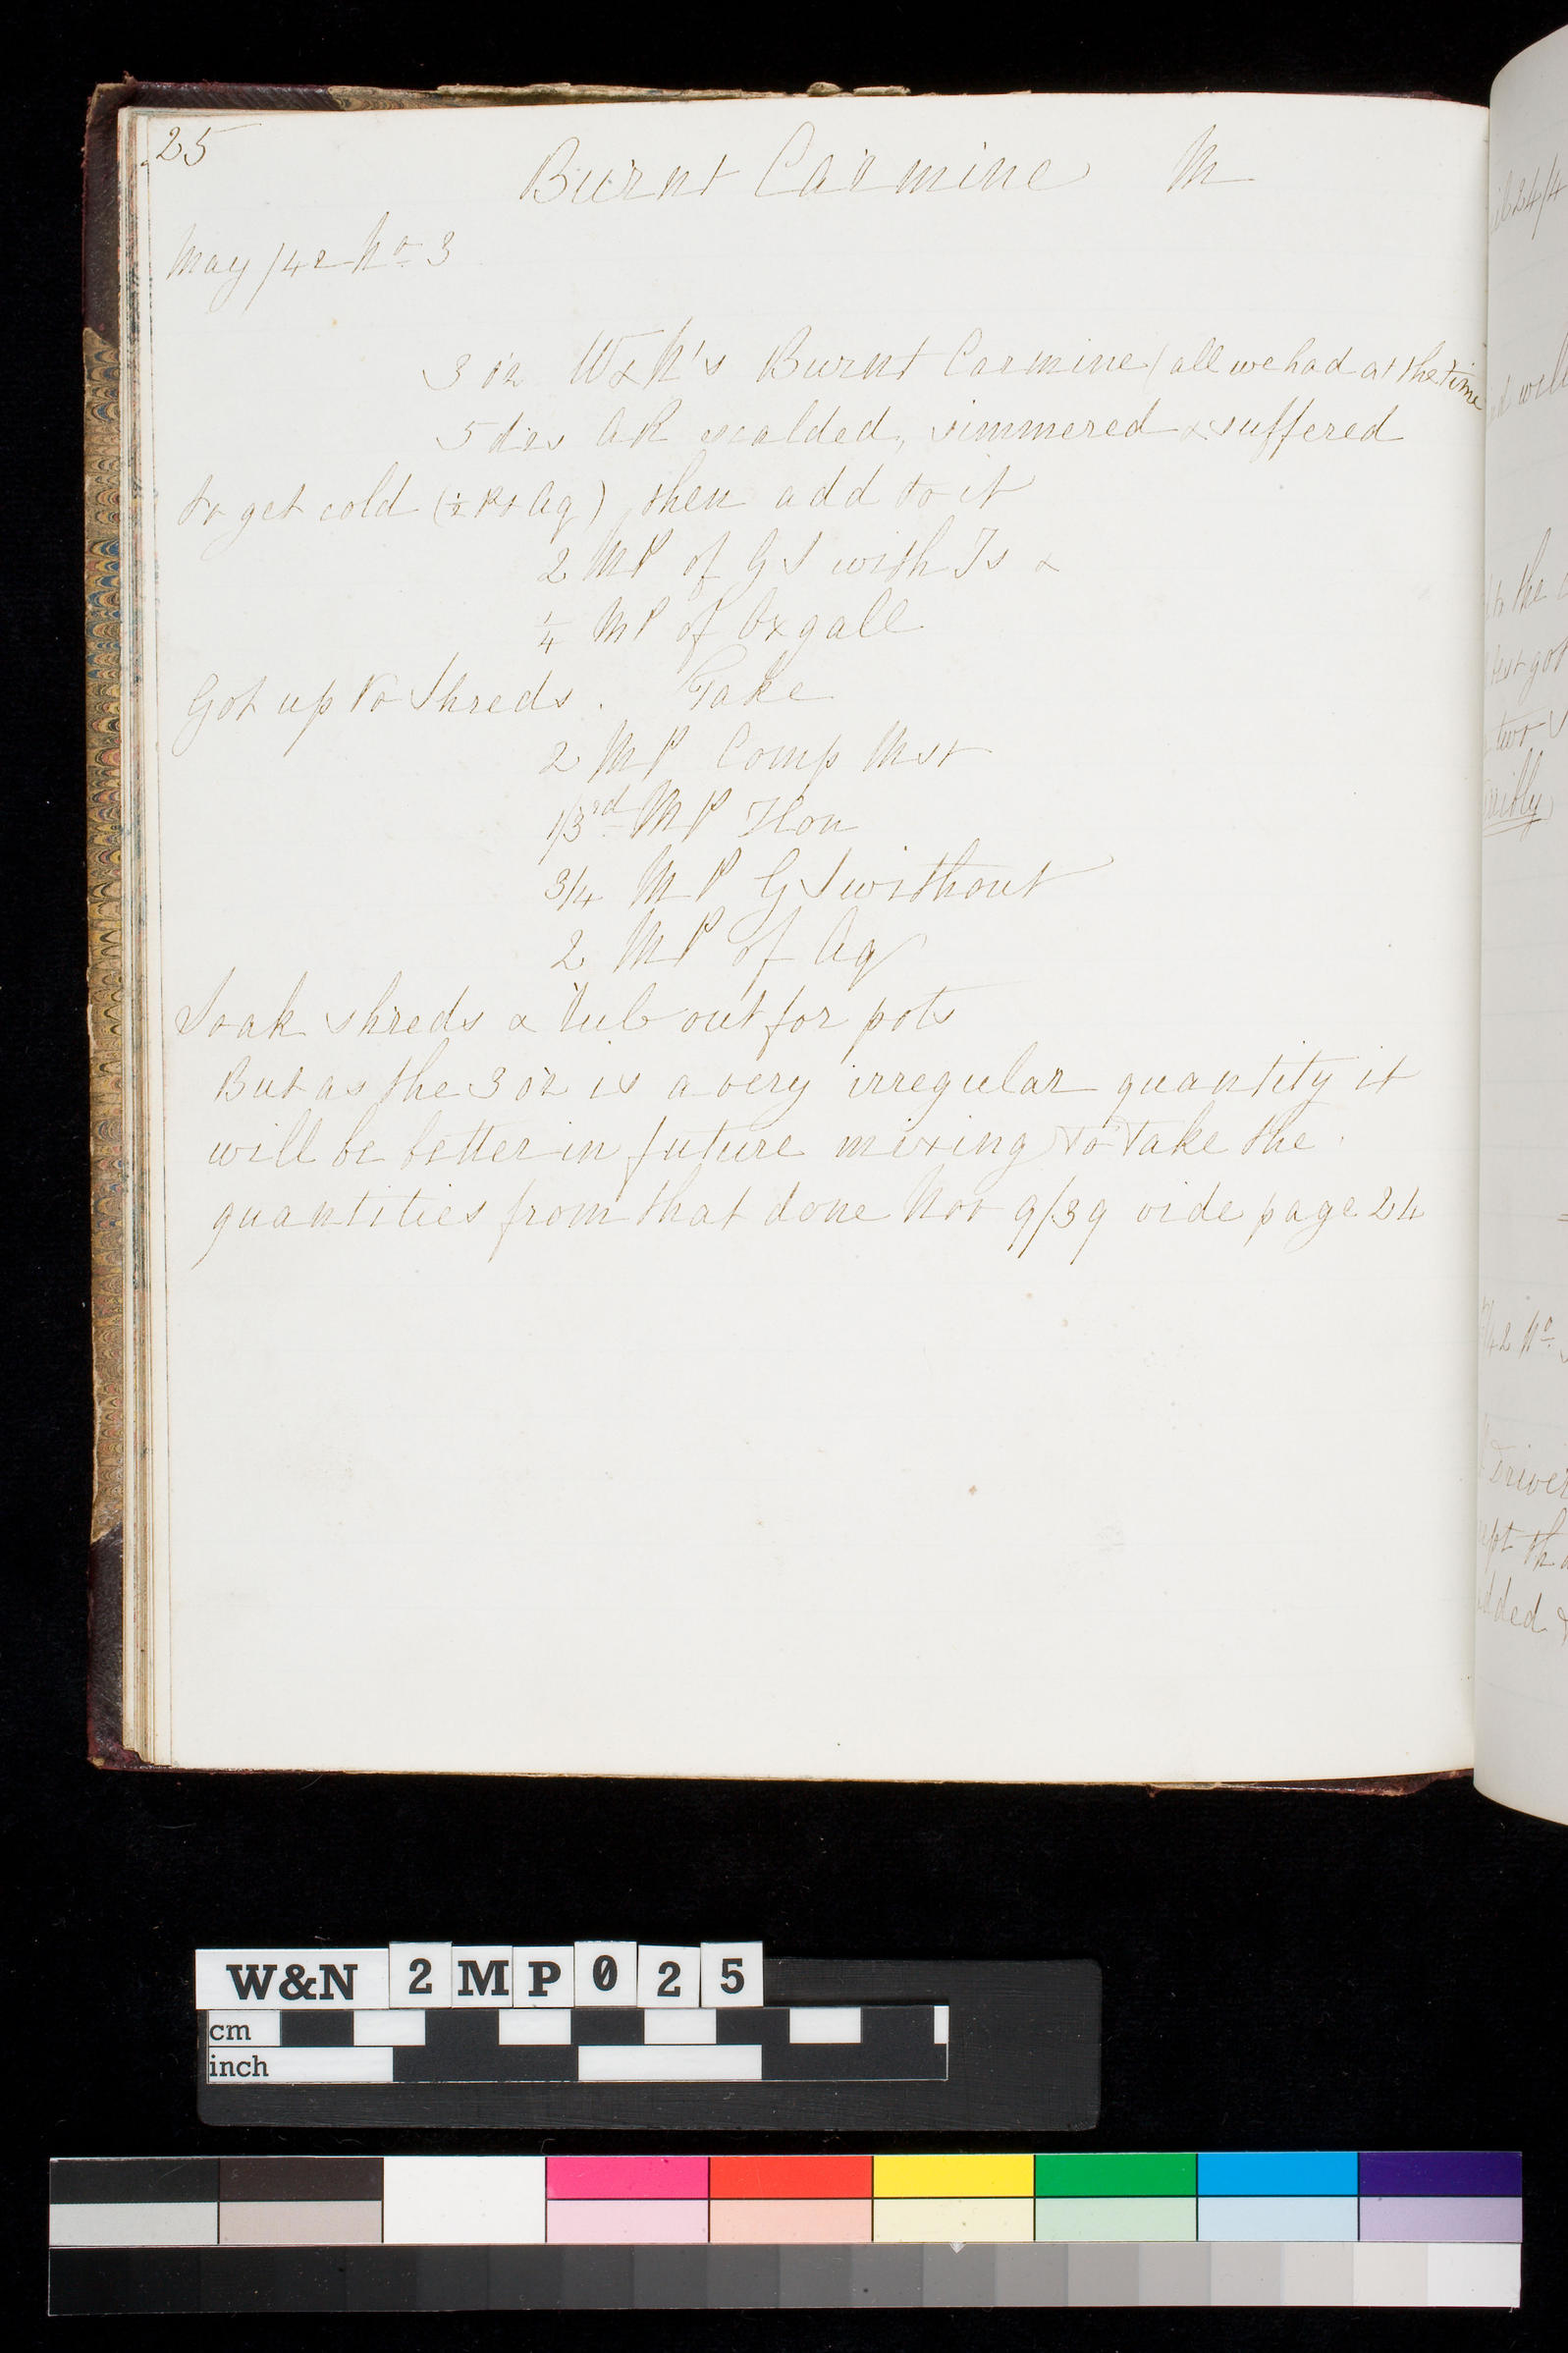 25
Burnt Carmine M
May /42 No 3
3 oz W & N's Burnt Carmine (all we had at the time
5 drs AR scalded, simmered & suffered
to get cold (½ Pt Aq) then add to it
2 MP of GS with Is &
¼ MP of Oxgall
Got up to Shreds. Take
2 MP Comp Mst
1/3rd MP Hon
3/4 MP GS without
2 MP of Aq
Soak shreds & tub out for pots
But as the 3 oz is a very irregular quantity it
will be better in future mixing to take the
quantities from that done Nov 9/39 vide page 24
will
to the
got
two
Driver
W&N 2MP025
cm
inch